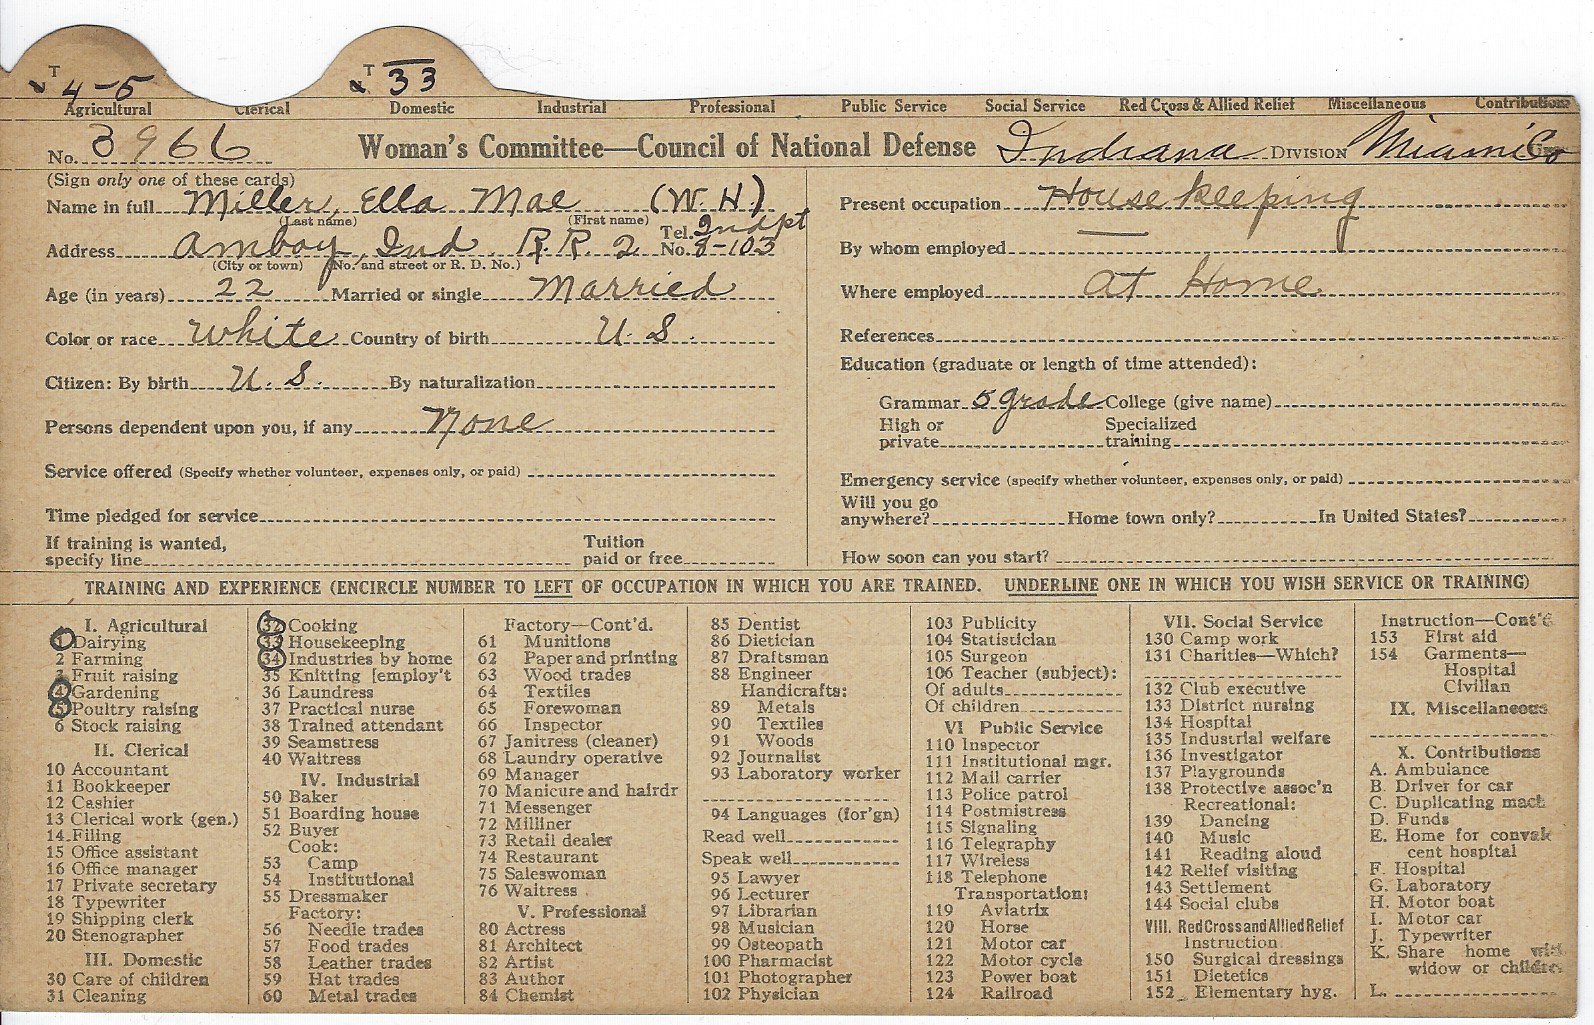 T 4-5 T 33
Agricultural Clerical Domestic Industrial Professional Public Service Social Service Red Cross & Allied Relief Miscellaneous Contributions
No. 3966 Woman's Committee—Council of National Defense Indiana DIVISION Miami Co
(Sign only one of these cards)
Name in full Miller, Ella Mae (W. H.)
(Last name) (First name)
Address Amboy, Ind R.R. 2 Tel. No. Indpt 8-103
(City or town) (No. and street or R. D. No.)
Age (in years) 22 Married or single Married
Color or race White Country of birth U. S.
Citizen: By birth U. S. By naturalization
Persons dependent upon you, if any None
Service offered (Specify whether volunteer, expenses only, or paid)
Time pledged for service
If training is wanted, specify line Tuition paid or free
Present occupation Housekeeping
By whom employed —
Where employed at Home
References
Education (graduate or length of time attended):
Grammar 5 grade College (give name)
High or private Specialized training
Emergency service (specify whether volunteer, expenses only, or paid)
Will you go anywhere? Home town only? In United States?
How soon can you start?
TRAINING AND EXPERIENCE (ENCIRCLE NUMBER TO LEFT OF OCCUPATION IN WHICH YOU ARE TRAINED. UNDERLINE ONE IN WHICH YOU WISH SERVICE OR TRAINING)
I. Agricultural
1 Dairying
2 Farming
3 Fruit raising
4 Gardening
5 Poultry raising
6 Stock raising
II. Clerical
10 Accountant
11 Bookkeeper
12 Cashier
13 Clerical work (gen.)
14 Filing
15 Office assistant
16 Office manager
17 Private secretary
18 Typewriter
19 Shipping clerk
20 Stenographer
III. Domestic
30 Care of children
31 Cleaning
32 Cooking
33 Housekeeping
34 Industries by home
35 Knitting [employ't
36 Laundress
37 Practical nurse
38 Trained attendant
39 Seamstress
40 Waitress
IV. Industrial
50 Baker
51 Boarding house
52 Buyer
Cook:
53 Camp
54 Institutional
55 Dressmaker
Factory:
56 Needle trades
57 Food trades
58 Leather trades
59 Hat trades
60 Metal trades
Factory—Cont'd.
61 Munitions
62 Paper and printing
63 Wood trades
64 Textiles
65 Forewoman
66 Inspector
67 Janitress (cleaner)
68 Laundry operative
69 Manager
70 Manicure and hairdr
71 Messenger
72 Milliner
73 Retail dealer
74 Restaurant
75 Saleswoman
76 Waitress
V. Professional
80 Actress
81 Architect
82 Artist
83 Author
84 Chemist
85 Dentist
86 Dietician
87 Draftsman
88 Engineer
Handicrafts:
89 Metals
90 Textiles
91 Woods
92 Journalist
93 Laboratory worker
94 Languages (for'gn)
Read well
Speak well
95 Lawyer
96 Lecturer
97 Librarian
98 Musician
99 Osteopath
100 Pharmacist
101 Photographer
102 Physician
103 Publicity
104 Statistician
105 Surgeon
106 Teacher (subject):
Of adults
Of children
VI Public Service
110 Inspector
111 Institutional mgr.
112 Mail carrier
113 Police patrol
114 Postmistress
115 Signaling
116 Telegraphy
117 Wireless
118 Telephone
Transportation:
119 Aviatrix
120 Horse
121 Motor car
122 Motor cycle
123 Power boat
124 Railroad
VII. Social Service
130 Camp work
131 Charities—Which?
132 Club executive
133 District nursing
134 Hospital
135 Industrial welfare
136 Investigator
137 Playgrounds
138 Protective assoc'n
Recreational:
139 Dancing
140 Music
141 Reading aloud
142 Relief visiting
143 Settlement
144 Social clubs
VIII. Red Cross and Allied Relief
Instruction
150 Surgical dressings
151 Dietetics
152 Elementary hyg.
Instruction—Cont'd
153 First aid
154 Garments—
Hospital
Civilian
IX. Miscellaneous
X. Contributions
A. Ambulance
B. Driver for car
C. Duplicating mach
D. Funds
E. Home for convales
cent hospital
F. Hospital
G. Laboratory
H. Motor boat
I. Motor car
J. Typewriter
K. Share home with
widow or children
L.